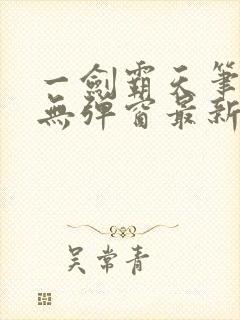 一劍霸天筆
無彈窗最新
吳常青